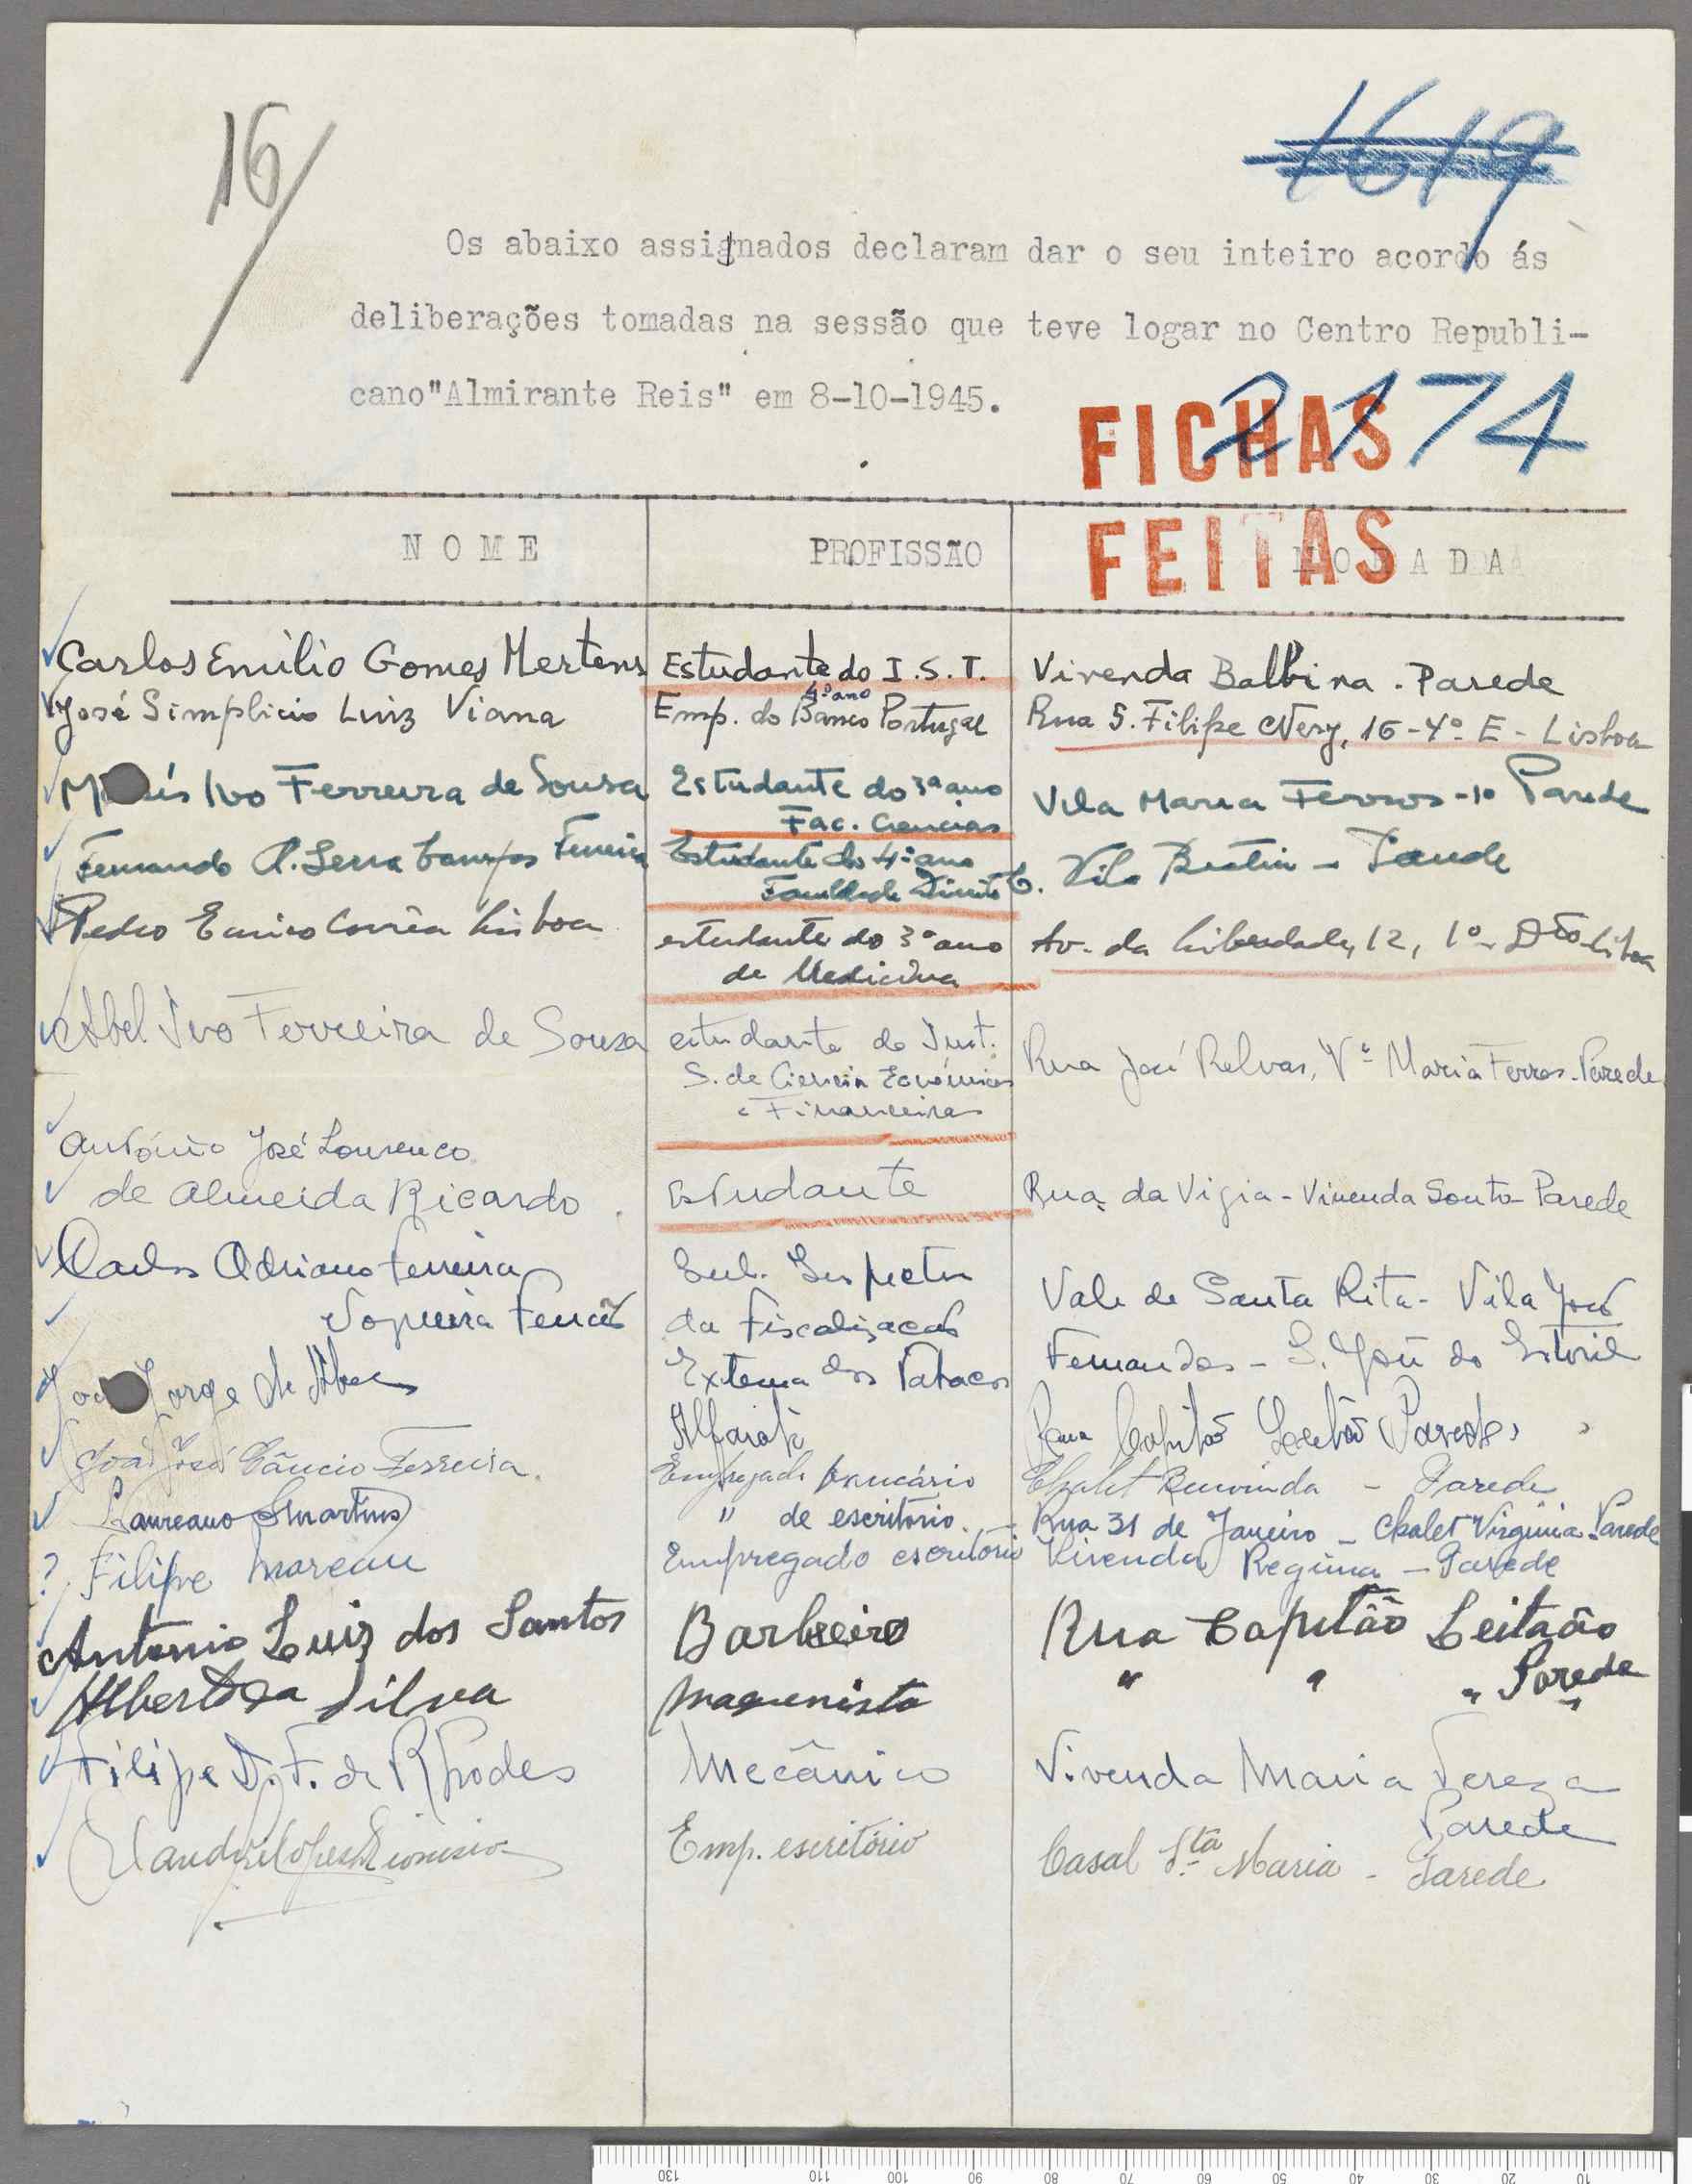 16
1619
Os abaixo assinados declaram dar o seu inteiro acordo ás
deliberações tomadas na sessão que teve logar no Centro Republi-
cano"Almirante Reis" em 8-10-1945.
2174
FICHAS
FEITAS
NOME PROFISSÃO MORADA
Carlos Emilio Gomes Mertens Estudante do I.S.T. Vivenda Balbina . Parede
4º ano
José Simplicio Luiz Viana Emp. do Banco Portugal Rua S. Filipe Nery, 16-4º E - Lisboa
Ivo Ferreira de Sousa Estudante do 3º ano Vila Maria Ferros - Parede
Fac. Ciencias
Fernando A. Serra Campos Ferreira Estudante do 4º ano Vila - Parede
Faculdade Direito
Pedro Eurico Corrêa Lisboa estudante do 3º ano Av. da Liberdade, 12, 1º Dto Lisboa
de Medicina
Abel Ivo Ferreira de Sousa estudante do Inst. Rua José Relvas, Vª Maria Ferros - Parede
S. de Ciencia Económicas
e Financeiras
António José Lourenco
de Almeida Ricardo Estudante Rua da Vigia - Vivenda Souto Parede
Carlos Adriano Ferreira Sub. Inspector Vale de Santa Rita - Vila José
Nogueira da Fiscalização Fernandes - S. João do Estoril
Externa dos Tabacos
Jorge de Alfaiate Rua Capitão Leitão Parede
João José Câncio Ferreira. Empregado bancário Chalet - Parede
Laureano Martins " de escritorio. - Rua 31 de Janeiro - Chalet Virginia - Parede
? Filipe Moreau Empregado escritório Vivenda Regina - Parede
Antonio Luiz dos Santos Barbeiro Rua Capitão Leitaão
Alberto da Silva Maquenista " " " Parede
Filipe D. F. de Rhodes Mecânico Vivenda Maria Tereza
Parede
Dionisio Emp. escritório Casal Sta Maria - Parede
130 110 100 90 80 70 60 50 40 30 20 10